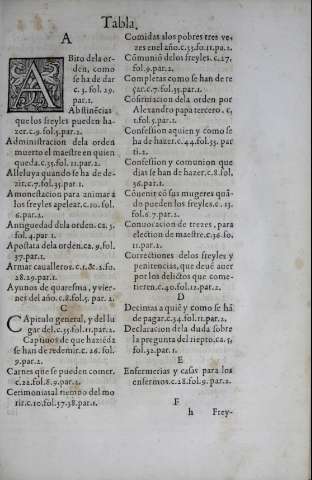 Tabla.
A
ABito dela or-
den, como
se ha de dar
c.3. fol. 29.
par.1.
Abstinēcias
que los freyles pueden ha-
zer.c.9.fol.5.par.2.
Administracion dela orden
muerto el maestre en quien
queda.c.35.fol.11.par.2.
Alleluya quando se ha de de-
zir.c.7.fol.35.par.1.
Amonestacion para animar a
los freyles apelear.c.10.fol.
6.par.2.
Antiguedad dela orden.ca.3.
fol.4.par 1.
Apostata dela orden.ca.9.fol.
37.par.1.
Armar caualleros.c.1.&.2.fo.
28.29.par.1.
Ayunos de quaresma, y vier-
nes del año.c.8.fol.5. par. 2.
C
CApitulo general, y del lu
gar del.c.35.fol.11.par.2.
Captiuos de que haziēda
se han de redemir.c. 26. fol.
9.par.2.
Carnes que se pueden comer.
c.22.fol.8.9.par.2.
Cerimonias al tiempo del mo
rir.c.10.fol.37.38.par.1.
Comidas alos pobres tres ve-
zes enel año.c.33.fo.11.pa.2.
Cōmunió delos freyles.c.27.
fol.9.par.2.
Completas como se han de re
çar.c.7.fol.35.par.1.
Cōfirmacion dela orden por
Alexandro papa tercero. c.
1.fol.3.par.1.
Confession aquien y como se
ha de hazer.c.44.fol.35. par
ti.2.
Confession y comunion que
dias se han de hazer.c.8.fol.
36.par.1.
Cōuenir cō sus mugeres quā-
do pueden los freyles.c.13.
fol.6.7.par.2.
Conuocacion de trezes, para
election de maestre.c.36.fo.
11.par.2.
Correctiones delos freyles y
penitencias, que deué auer
por los delictos que come-
tieren.c.40.fol.12.par.2.
D
Decimas a quié y como se hā
de pagar.c.34.fol.11.par.2.
Declaracion dela duda sobre
la pregunta del riepto.ca.5,
fol.32.par.1.
E
Enfermerias y casas para los
enfermos.c.28.fol.9. par.2.
F
h Frey-